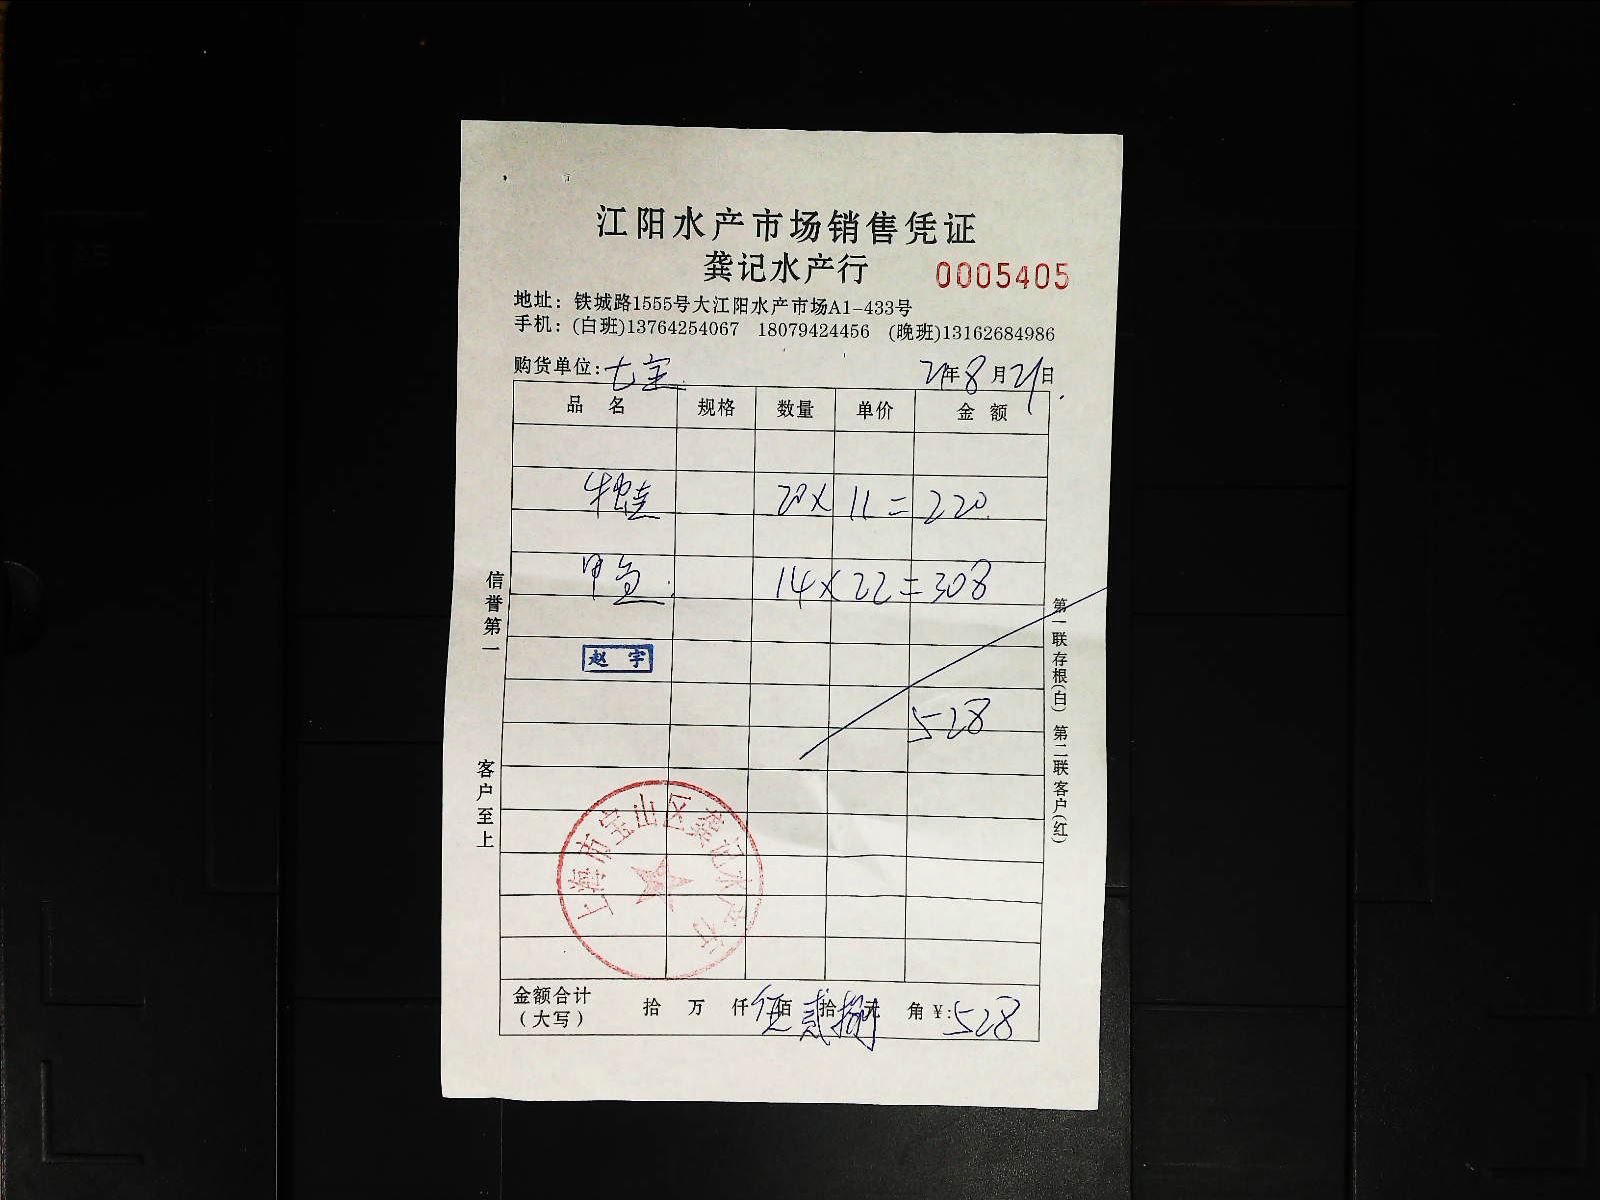 江阳水产市场销售凭证
龚记水产行 0005405
地址：铁城路1555号大江阳水产市场A1-433号
手机：(白班)13764254067 18079424456 (晚班)13162684986
购货单位：七宝 21年8月21日
品名 规格 数量 单价 金额
牛蛙 20×11=220
甲鱼 14×22=308
赵宇
528
上海市宝山区龚记水产行
金额合计（大写） 拾 万 仟伍佰贰拾捌元 角 ¥:528
信誉第一
客户至上
第一联存根(白) 第二联客户(红)